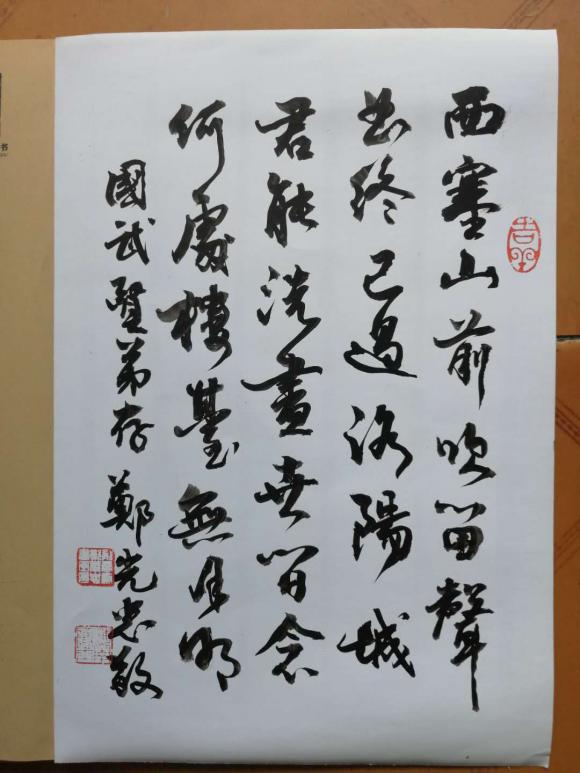 西塞山前吹笛聲
曲終已過洛陽城
君能洗盡世間念
何處樓臺無月明
國武賢弟存 鄭光忠敬
吉羊
书